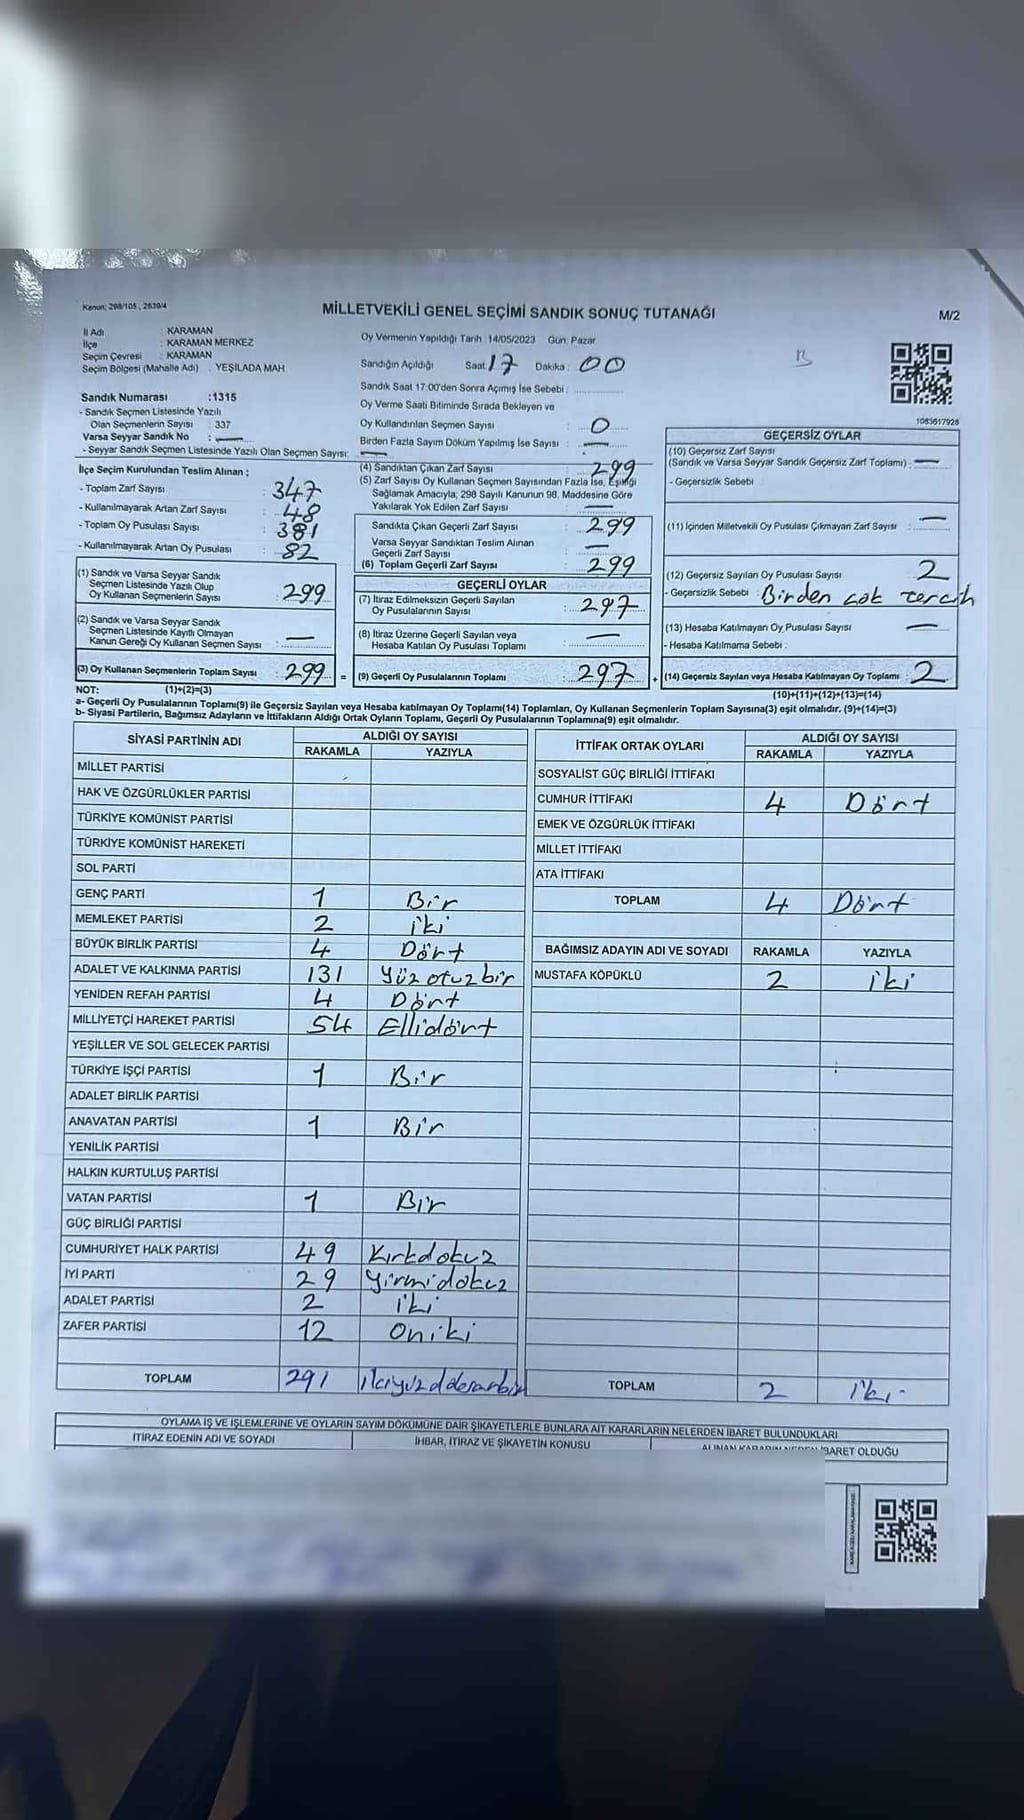 Kanun: 298/105 , 2839/4
MİLLETVEKİLİ GENEL SEÇİMİ SANDIK SONUÇ TUTANAĞI
M/2
İl Adı : KARAMAN
İlçe : KARAMAN MERKEZ
Seçim Çevresi : KARAMAN
Seçim Bölgesi (Mahalle Adı) : YEŞİLADA MAH.
Sandık Numarası :1315
- Sandık Seçmen Listesinde Yazılı
Olan Seçmenlerin Sayısı : 337
Varsa Seyyar Sandık No : —
- Seyyar Sandık Seçmen Listesinde Yazılı Olan Seçmen Sayısı: —
Oy Vermenin Yapıldığı Tarih :14/05/2023 Gün: Pazar
Sandığın Açıldığı Saat: 17 Dakika : 00
Sandık Saat 17:00'den Sonra Açımış İse Sebebi :
Oy Verme Saati Bitiminde Sırada Bekleyen ve
Oy Kullandırılan Seçmen Sayısı : 0
Birden Fazla Sayım Döküm Yapılmış İse Sayısı : —
B
1083617928
İlçe Seçim Kurulundan Teslim Alınan ;
- Toplam Zarf Sayısı : 347
- Kullanılmayarak Artan Zarf Sayısı : 48
- Toplam Oy Pusulası Sayısı : 381
- Kullanılmayarak Artan Oy Pusulası : 82
(1) Sandık ve Varsa Seyyar Sandık
Seçmen Listesinde Yazılı Olup
Oy Kullanan Seçmenlerin Sayısı : 299
(2) Sandık ve Varsa Seyyar Sandık
Seçmen Listesinde Kayıtlı Olmayan
Kanun Gereği Oy Kullanan Seçmen Sayısı : —
(3) Oy Kullanan Seçmenlerin Toplam Sayısı : 299 =
(4) Sandıktan Çıkan Zarf Sayısı : 299
(5) Zarf Sayısı Oy Kullanan Seçmen Sayısından Fazla İse, Eşitliği
Sağlamak Amacıyla; 298 Sayılı Kanunun 98. Maddesine Göre
Yakılarak Yok Edilen Zarf Sayısı : —
Sandıkta Çıkan Geçerli Zarf Sayısı : 299
Varsa Seyyar Sandıktan Teslim Alınan
Geçerli Zarf Sayısı : —
(6) Toplam Geçerli Zarf Sayısı : 299
GEÇERLİ OYLAR
(7) İtiraz Edilmeksizin Geçerli Sayılan
Oy Pusulalarının Sayısı : 297
(8) İtiraz Üzerine Geçerli Sayılan veya
Hesaba Katılan Oy Pusulası Toplamı : —
(9) Geçerli Oy Pusulalarının Toplamı : 297 +
GEÇERSİZ OYLAR
(10) Geçersiz Zarf Sayısı
(Sandık ve Varsa Seyyar Sandık Geçersiz Zarf Toplamı) : —
- Geçersizlik Sebebi :
(11) İçinden Milletvekili Oy Pusulası Çıkmayan Zarf Sayısı : —
(12) Geçersiz Sayılan Oy Pusulası Sayısı : 2
- Geçersizlik Sebebi : Birden çok tercih
(13) Hesaba Katılmayan Oy Pusulası Sayısı : —
- Hesaba Katılmama Sebebi :
(14) Geçersiz Sayılan veya Hesaba Katılmayan Oy Toplamı : 2
NOT: (1)+(2)=(3)
(10)+(11)+(12)+(13)=(14)
a- Geçerli Oy Pusulalarının Toplamı(9) ile Geçersiz Sayılan veya Hesaba katılmayan Oy Toplamı(14) Toplamları, Oy Kullanan Seçmenlerin Toplam Sayısına(3) eşit olmalıdır. (9)+(14)=(3)
b- Siyasi Partilerin, Bağımsız Adayların ve İttifakların Aldığı Ortak Oyların Toplamı, Geçerli Oy Pusulalarının Toplamına(9) eşit olmalıdır.
SİYASİ PARTİNİN ADI ALDIĞI OY SAYISI
RAKAMLA YAZIYLA
MİLLET PARTİSİ
HAK VE ÖZGÜRLÜKLER PARTİSİ
TÜRKİYE KOMÜNİST PARTİSİ
TÜRKİYE KOMÜNİST HAREKETİ
SOL PARTİ
GENÇ PARTİ 1 Bir
MEMLEKET PARTİSİ 2 iki
BÜYÜK BİRLİK PARTİSİ 4 Dört
ADALET VE KALKINMA PARTİSİ 131 Yüz otuz bir
YENİDEN REFAH PARTİSİ 4 Dört
MİLLİYETÇİ HAREKET PARTİSİ 54 Ellidört
YEŞİLLER VE SOL GELECEK PARTİSİ
TÜRKİYE İŞÇİ PARTİSİ 1 Bir
ADALET BİRLİK PARTİSİ
ANAVATAN PARTİSİ 1 Bir
YENİLİK PARTİSİ
HALKIN KURTULUŞ PARTİSİ
VATAN PARTİSİ 1 Bir
GÜÇ BİRLİĞİ PARTİSİ
CUMHURİYET HALK PARTİSİ 49 Kırkdokuz
İYİ PARTİ 29 Yirmidokuz
ADALET PARTİSİ 2 iki
ZAFER PARTİSİ 12 Oniki
TOPLAM 291 ikiyüzddoksanbir
İTTİFAK ORTAK OYLARI ALDIĞI OY SAYISI
RAKAMLA YAZIYLA
SOSYALİST GÜÇ BİRLİĞİ İTTİFAKI
CUMHUR İTTİFAKI 4 Dört
EMEK VE ÖZGÜRLÜK İTTİFAKI
MİLLET İTTİFAKI
ATA İTTİFAKI
TOPLAM 4 Dört
BAĞIMSIZ ADAYIN ADI VE SOYADI RAKAMLA YAZIYLA
MUSTAFA KÖPÜKLÜ 2 iki
TOPLAM 2 iki
OYLAMA İŞ VE İŞLEMLERİNE VE OYLARIN SAYIM DÖKÜMÜNE DAİR ŞİKAYETLERLE BUNLARA AİT KARARLARIN NELERDEN İBARET BULUNDUKLARI
İTİRAZ EDENİN ADI VE SOYADI İHBAR, İTİRAZ VE ŞİKAYETİN KONUSU İBARET OLDUĞU